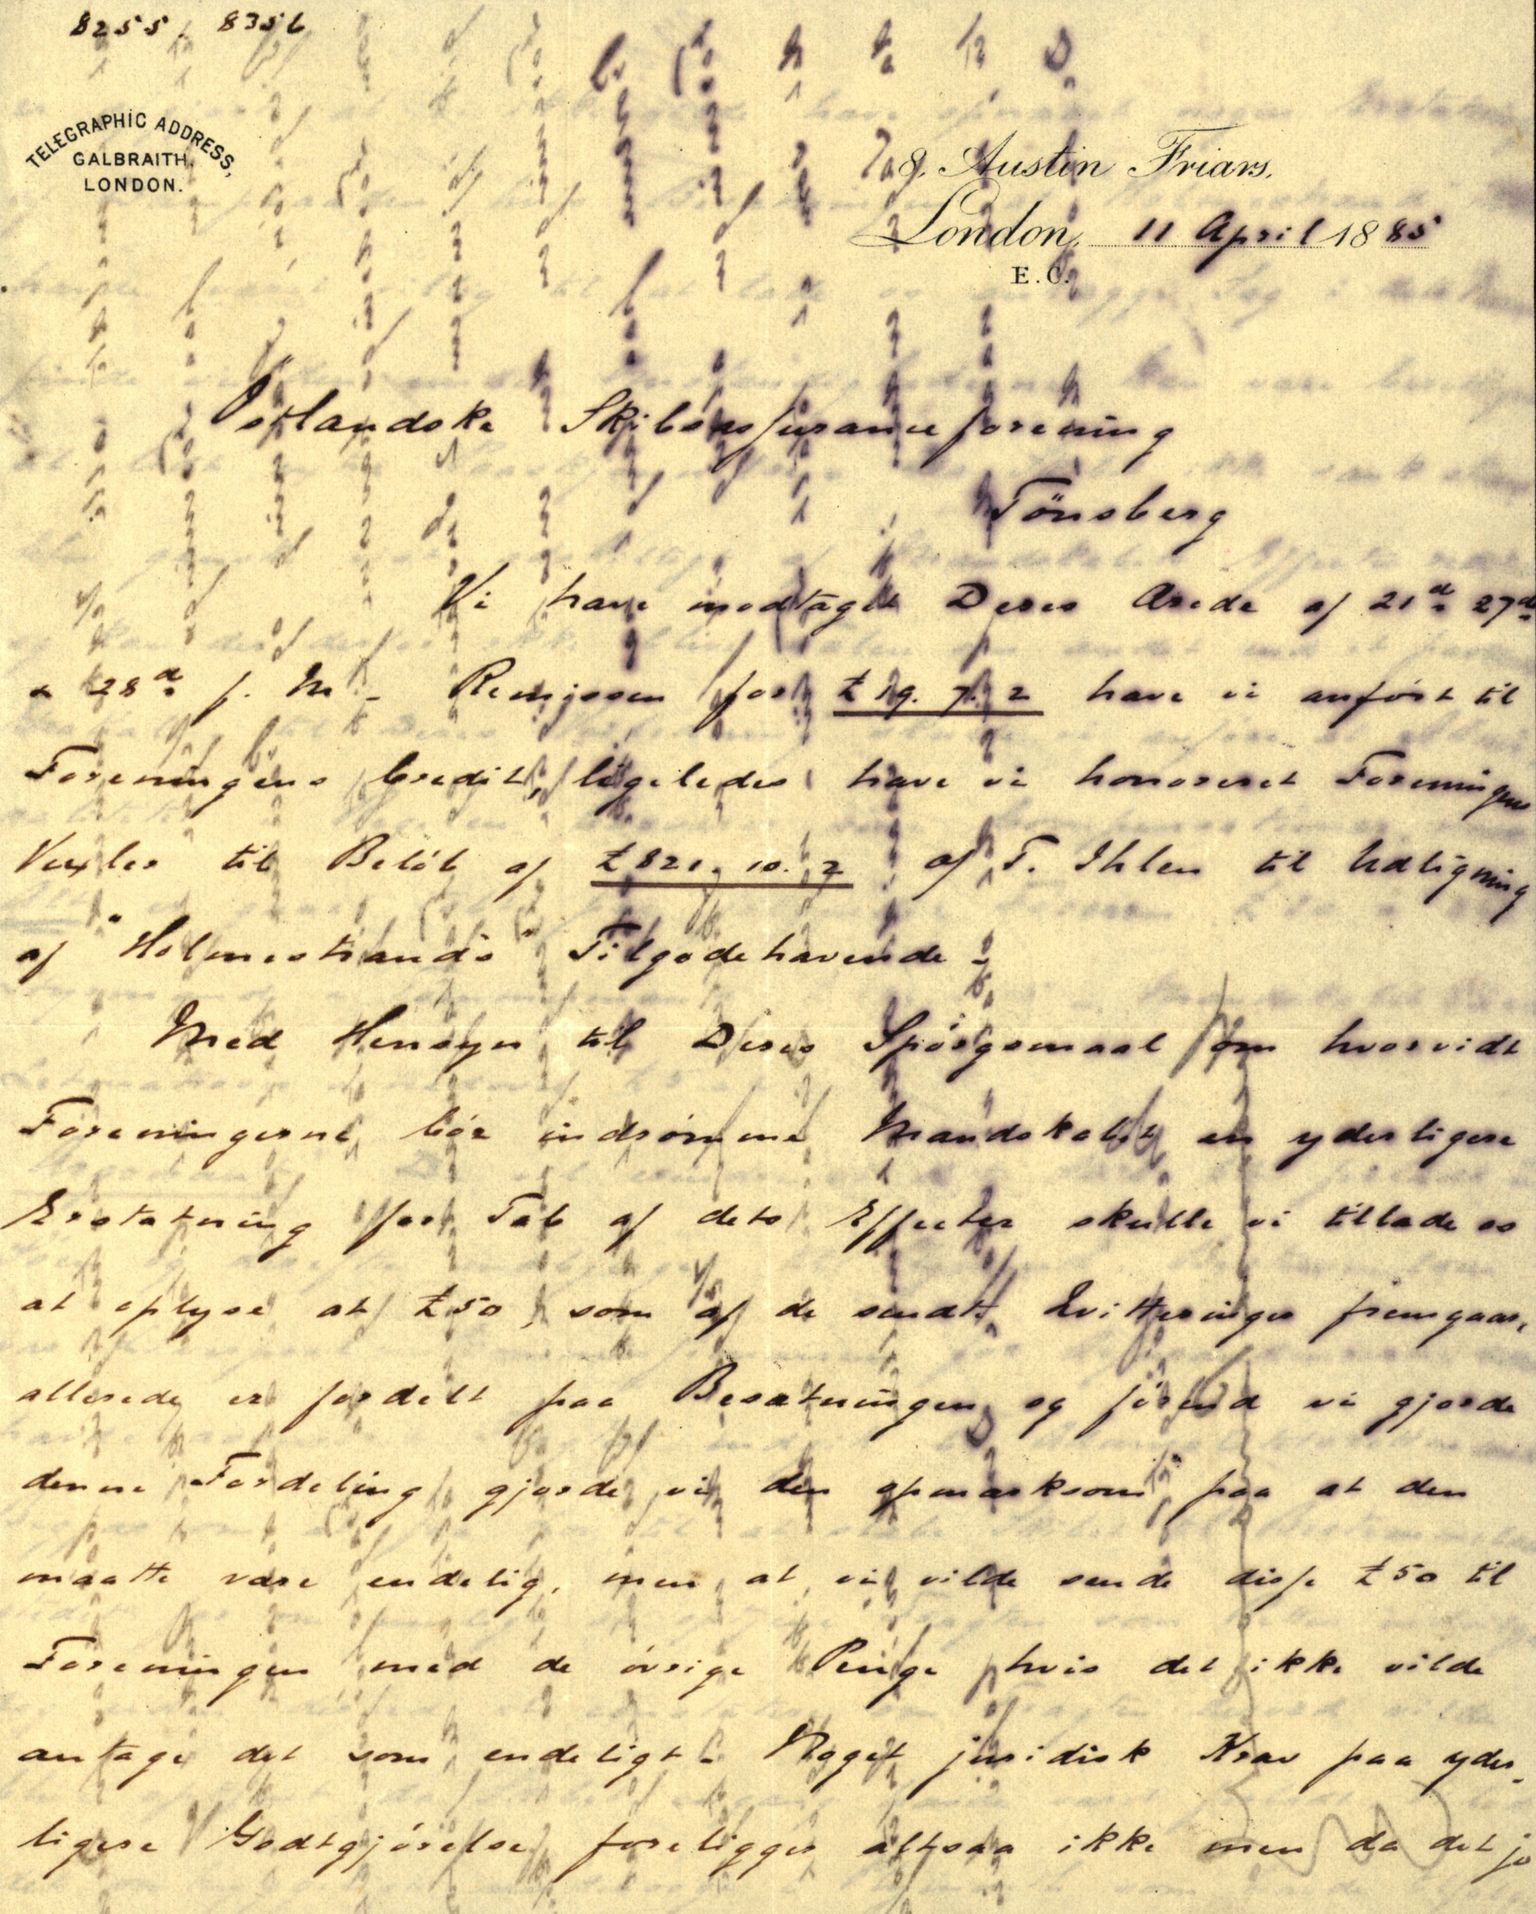 8255. 8356
TELEGRAPHIC ADDRESS,
GALBRAITH,
LONDON.
8, Austin Friars,
London, 11 April 1885
E.C.
Ostlandske Skibsassuranceforening
Tönsberg
Vi have modtaget Deres Ærede af 21de 27de
& 28de f. M. - Remissen for £ 19. 7. 2 have vi anfört til
Foreningens Credit, ligeledes have vi honoreret Foreningens
Vexler til Belöb af £ 821. 10. 2 af T. Ihlen til Udligning
af "Holmestrands" Tilgodehavende -
Med Hensyn til Deres Spörgsmaal om hvorvidt
Foreningerne bör indrömme Mandskabet en yderligere
Erstatning for Tab af dets Effecter skulle vi tillade os
at oplyse at £50, som af de sendte Qvitteringer fremgaar,
allerede er fordelt paa Besætningen og förend vi gjorde
denne Fordeling gjorde vi den opmærksom paa at den
maatte være endelig, men at vi vilde sende disse £50 til
Foreningen med de övrige Penge hvis det ikke vilde
antage det som endeligt - Noget juridisk Krav paa yder-
ligere Godtgjörelse foreligger altsaa ikke men da det jo